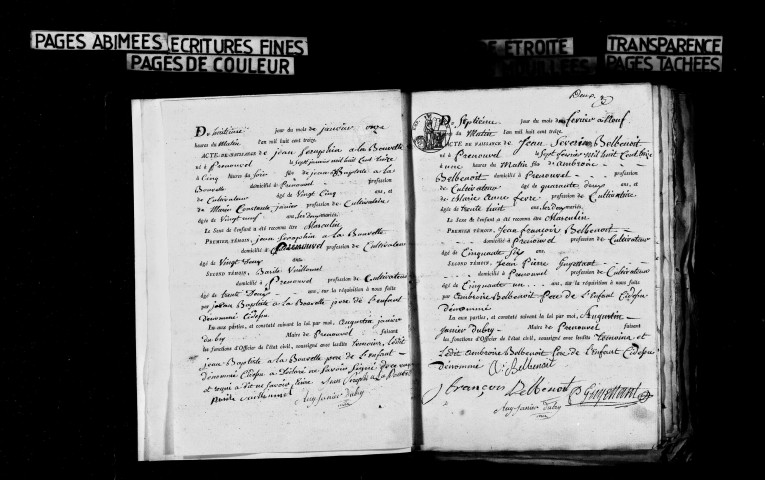 PAGES ABIMEES ECRITURES FINES
PAGES DE COULEUR
ETROITE TRANSPARENCE
MOUILLEES PAGES TACHEES
Du huitième jour du mois de janvier onze
heures du Matin l'an mil huit cent treize.
ACTE DE NAISSANCE de jean Seraphin a la Bouvette
né à Prenouvel le Sept janvier mil huit Cent treize
à Cinq heures du Soir fils de jean Baptiste a la
Bouvette domicilié à Prenouvel profession
de Cultivateur âgé de Vingt Cinq ans, et
de Marie Constante janier profession de Cultivatrice
âgée de Vingt neuf ans,
Le Sexe de l'enfant a été reconnu être Masculin
PREMIER TÉMOIN, jean Seraphin a la Bouvette
domicilié à Prenouvel profession de Cultivateur
âgé de Vingt ans
SECOND TÉMOIN, Basile Vuillermet
domicilié à Prenouvel profession de Cultivateur
âgé de trente Deux ans, sur la réquisition à nous faite
par jean Baptiste a la Bouvette pere de l'enfant
dénommé Cidessus
Lu aux parties, et constaté suivant la loi par moi, Augustin janier
dubry Maire de Prenouvel faisant
les fonctions d'Officier de l'état civil, consigné avec lesdits temoins, Ledit
jean Baptiste a la Bouvette pere de l'enfant
dénommé Cidessus a Déclaré ne Savoir Signer
Aug janier dubry
Deux
Du Septième jour du mois de fevrier a Neuf
heures du Matin l'an mil huit cent treize.
ACTE DE NAISSANCE de Jean Severin Belbenoit
né à Prenouvel le Sept fevrier mil huit Cent treize
à une heures du Matin fils de ambroise
Belbenoit domicilié à Prenouvel profession
de Cultivateur âgé de quarante deux ans, et
de Marie Anne fevre profession de Cultivatrice
âgée de trente huit ans,
Le Sexe de l'enfant a été reconnu être Masculin
PREMIER TÉMOIN, Jean françois Belbenoit
domicilié à Prenouvel profession de Cultivateur
âgé de Cinquante Six ans
SECOND TÉMOIN, Jean Pierre Guyettant
domicilié à Prenouvel profession de Cultivateur
âgé de Cinquante un ans, sur la réquisition à nous faite
par Ambroise Belbenoit Pere de l'Enfant Cidessus
dénommé
Lu aux parties, et constaté suivant la loi par moi, Augustin
janier dubry Maire de Prenouvel faisant
les fonctions d'Officier de l'état civil, consigné avec lesdits temoins et
Ledit Ambroise Belbenoit Pere de l'enfant Cidessus
dénommé A Belbenoit
J françois Belbenoit P Guyettant
Aug janier dubry